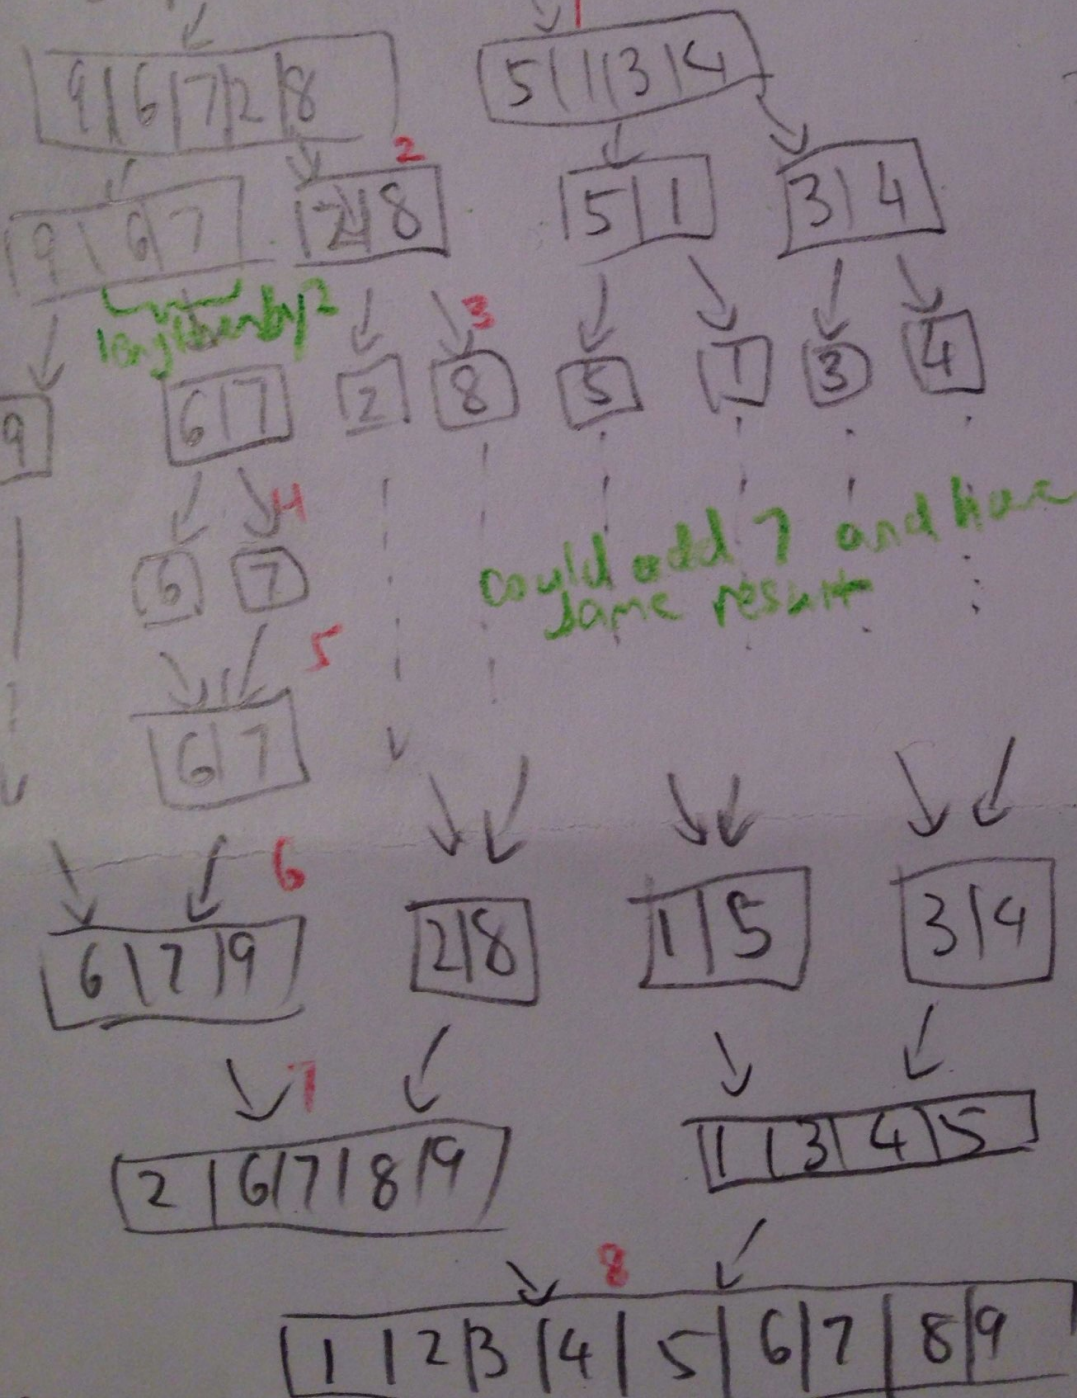 1
9 | 6 | 7 | 2 | 8
5 | 1 | 3 | 4
2
9 | 6 | 7
2 | 8
5 | 1
3 | 4
3
9
6 | 7
2
8
5
1
3
4
4
6
7
could add 7 and have
same result
5
6 | 7
6
6 | 7 | 9
2 | 8
1 | 5
3 | 4
7
2 | 6 | 7 | 8 | 9
1 | 3 | 4 | 5
8
1 | 2 | 3 | 4 | 5 | 6 | 7 | 8 | 9